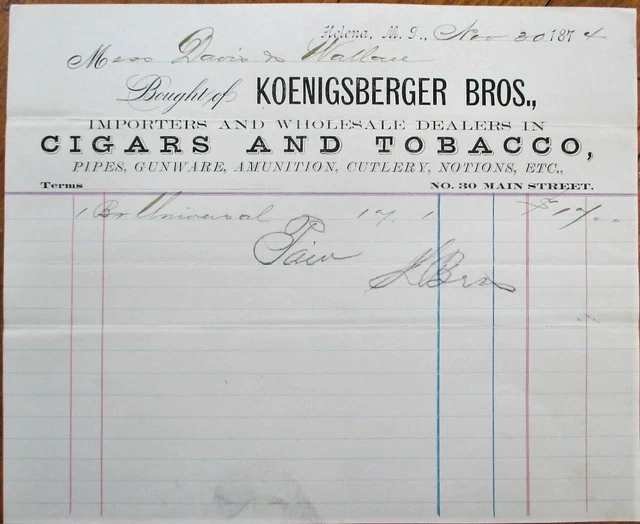 Helena, M. T., Nov 30 1874
Mess Davis & Wallace
Bought of KOENIGSBERGER BROS.,
IMPORTERS AND WHOLESALE DEALERS IN
CIGARS AND TOBACCO,
PIPES, GUNWARE, AMUNITION, CUTLERY, NOTIONS, ETC.,
Terms NO. 30 MAIN STREET.
1 Bx Universal 17. $17.00
Paid
K Bros